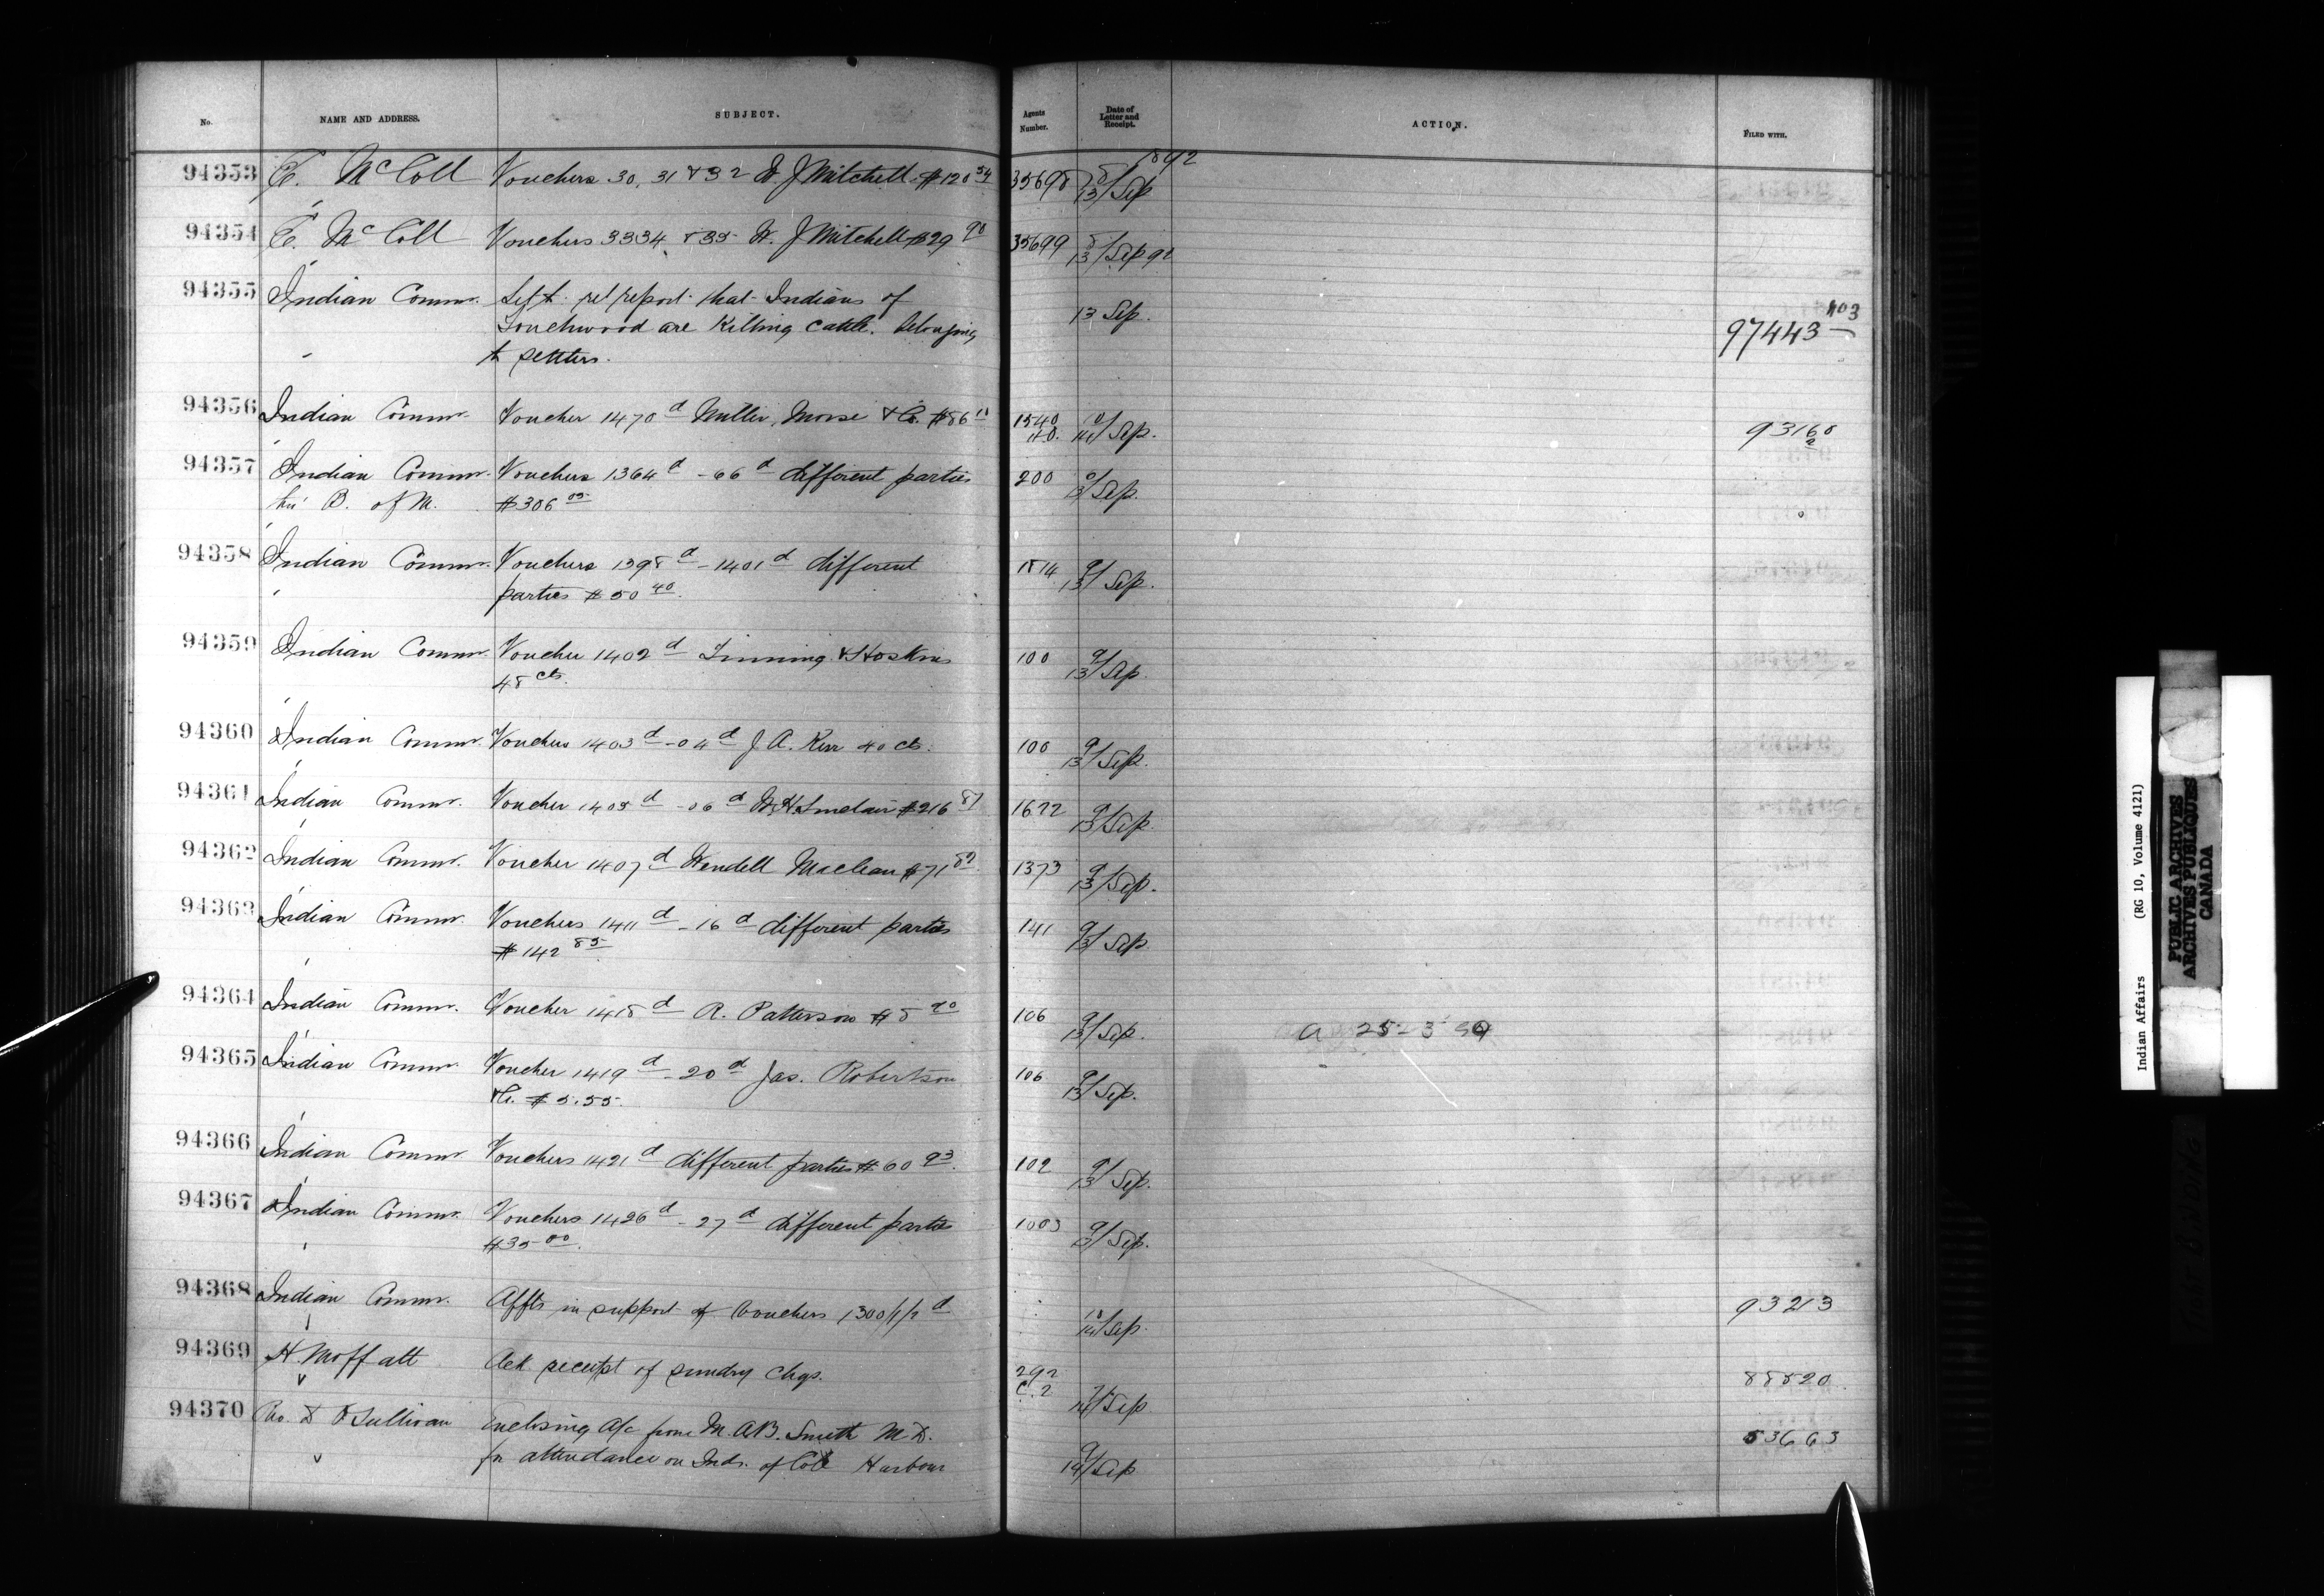 No. NAME AND ADDRESS. SUBJECT. Agents Number. Date of Letter and Receipt. ACTION. FILED WITH.
1892
94353 E. McColl Vouchers 30, 31 & 32 W J Mitchell $120 34 35698 8/13/Sep
94354 E. McColl Vouchers 33 34 & 35 W. J Mitchell $29 90 35699 8/13/Sep 92
94355 Indian Commr. report that Indians of 13 Sep. 97443 403
Touchwood are Killing cattle belonging
to settlers.
94356 Indian Commr. Voucher 1470 d Miller, Morse & Co. $86 10 1540 H.O. 10/14/Sep. 93160 2
94357 Indian Commr. Vouchers 1364 d - 66 d different parties 200 9/13/Sep.
thro' B. of M. $306 05
94358 Indian Commr. Vouchers 1398 d - 1401 d different 1814 9/13/Sep.
parties $50 40.
94359 Indian Commr. Voucher 1402 d Tinning & Hoskins 100 9/13/Sep
48 cts.
94360 Indian Commr. Vouchers 1403 d - 04 d J A. Kerr 40 cts. 100 9/13/Sep.
94361 Indian Commr. Voucher 1405 d - 06 d W. H. Sinclair $216 87 1672 9/13/Sep.
94362 Indian Commr. Voucher 1407 d Wendell Maclean $71 1373 9/13/Sep.
94363 Indian Commr. Vouchers 1411 d - 16 d different parties 141 9/13/Sep
$142 85
94364 Indian Commr. Voucher 1418 d R. Patterson $5 20 106 9/13/Sep. a 25-3
94365 Indian Commr. Voucher 1419 d - 20 d Jas. Robertson 106 9/13/Sep.
& Co. $5.55.
94366 Indian Commr Vouchers 1421 d different parties $60 93. 102 9/13/Sep.
94367 Indian Commr. Vouchers 1426 d - 27 d different parties 1003 9/13/Sep.
$35 00.
94368 Indian Commr. Affts in support of Vouchers 1300/1/2 d 10/14/Sep. 93213
94369 H. Moffatt Ack receipt of sundry chqs. 292 C. 2 14/Sep 88820
94370 D O'Sullivan Enclosing a/c from M. A. B. Smith M D. 9/14/Sep 53663
for attendance on Inds. of Cole Harbour
Indian Affairs (RG 10, Volume 4121)
PUBLIC ARCHIVES
ARCHIVES PUBLIQUES
CANADA